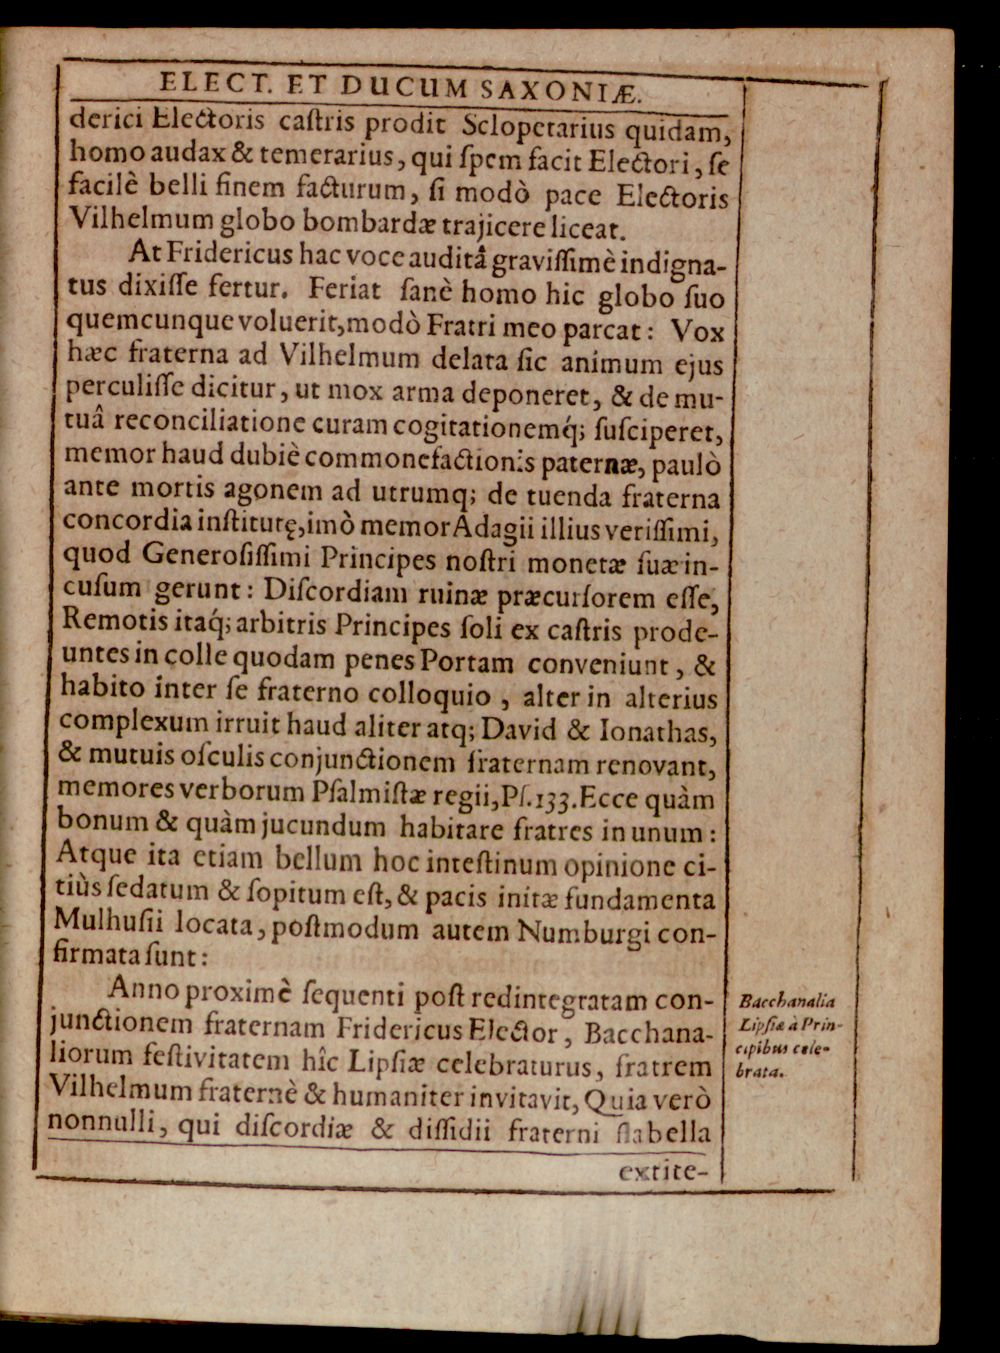 ELECT. ET DUCUM SAXONIÆ.
derici Electoris caſtris prodit Sclopetarius quidam,
homo audax & temerarius, qui ſpem facit Electori, ſe
facilè belli finem facturum, ſi modò pace Electoris
Vilhelmum globo bombardæ trajicere liceat.
At Fridericus hac voce auditâ graviſſimè indigna-
tus dixiſſe fertur. Feriat ſanè homo hic globo ſuo
quemcunque voluerit, modò Fratri meo parcat: Vox
hæc fraterna ad Vilhelmum delata ſic animum ejus
perculiſſe dicitur, ut mox arma deponeret, & de mu-
tuâ reconciliatione curam cogitationemq́; ſuſciperet,
memor haud dubiè commonefactionis paternæ, paulò
ante mortis agonem ad utrumq; de tuenda fraterna
concordia inſtitutę, imò memor Adagii illius veriſſimi,
quod Generoſiſſimi Principes noſtri monetæ ſuæ in-
cuſum gerunt: Diſcordiam ruinæ præcurſorem eſſe,
Remotis itaq́; arbitris Principes ſoli ex caſtris prode-
untes in colle quodam penes Portam conveniunt, &
habito inter ſe fraterno colloquio, alter in alterius
complexum irruit haud aliter atq; David & Ionathas,
& mutuis oſculis conjunctionem fraternam renovant,
memores verborum Pſalmiſtæ regii, Pſ. 133. Ecce quàm
bonum & quàm jucundum habitare fratres in unum:
Atque ita etiam bellum hoc inteſtinum opinione ci-
tiùs ſedatum & ſopitum eſt, & pacis initæ fundamenta
Mulhuſii locata, poſtmodum autem Numburgi con-
firmata ſunt:
Anno proximè ſequenti poſt redintegratam con-
junctionem fraternam Fridericus Elector, Bacchana-
liorum feſtivitatem hîc Lipſiæ celebraturus, fratrem
Vilhelmum fraternè & humaniter invitavit, Quia verò
nonnulli, qui diſcordiæ & diſſidii fraterni flabella
extite-
Bacchanalia
Lipſiæ à Prin-
cipibus cele-
brata.